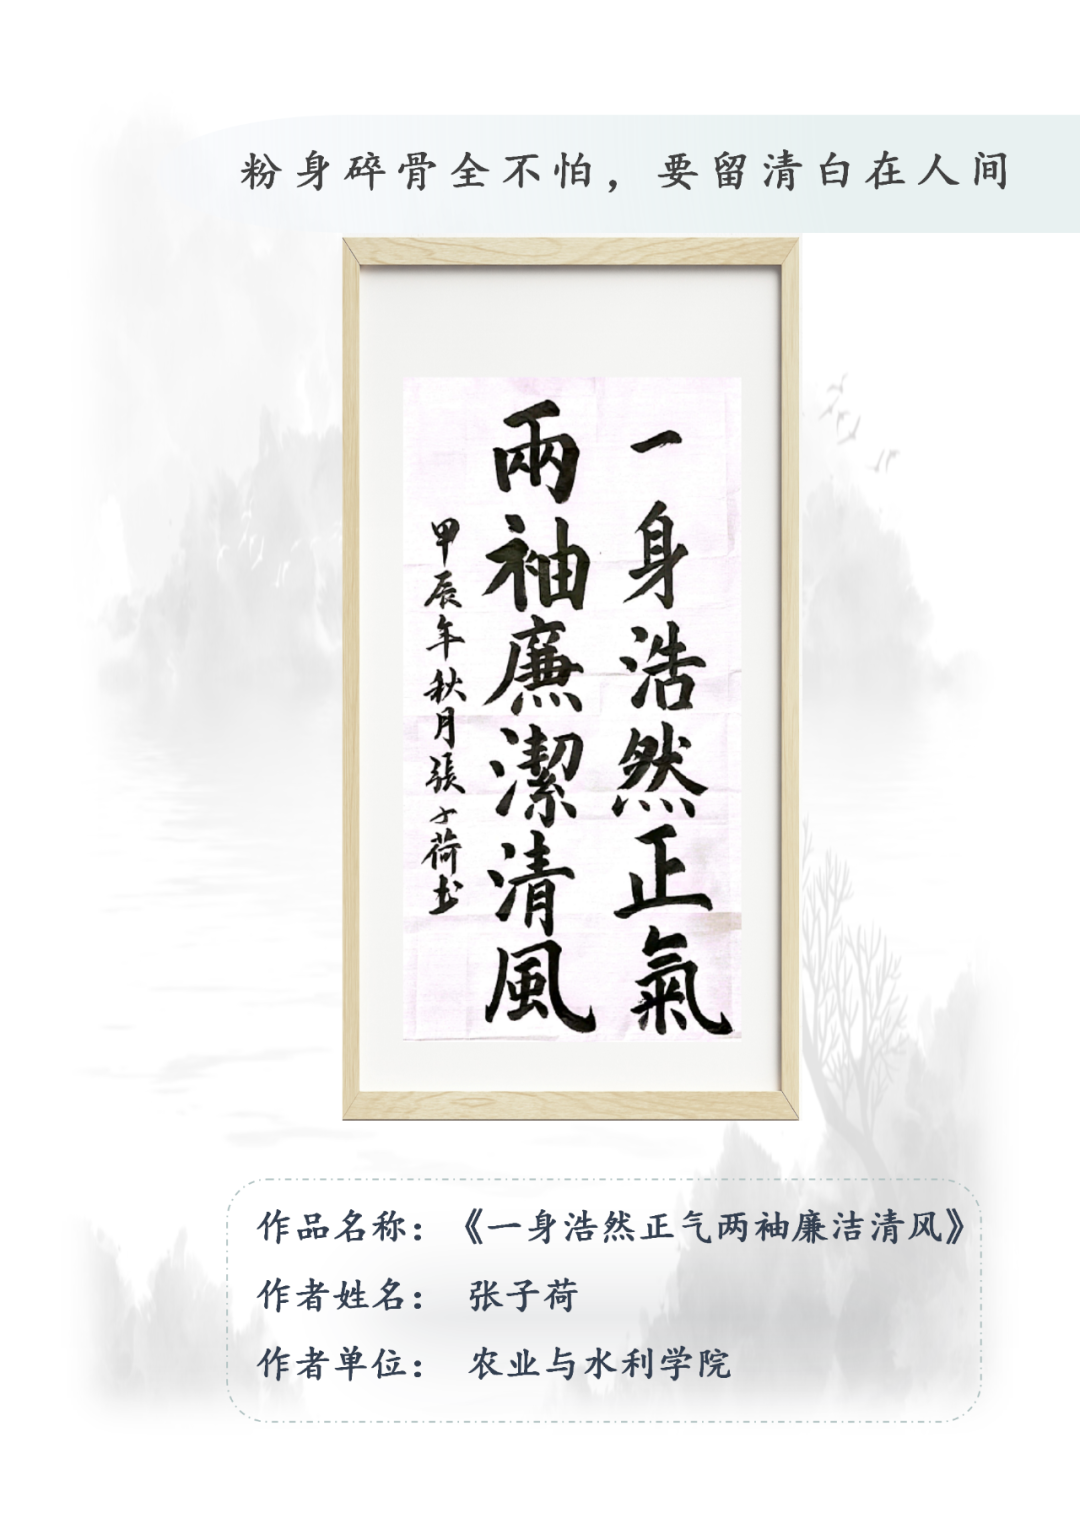 粉身碎骨全不怕，要留清白在人间
一身浩然正氣
兩袖廉潔清風
甲辰年秋月張子荷书
作品名称：《一身浩然正气两袖廉洁清风》
作者姓名：张子荷
作者单位：农业与水利学院